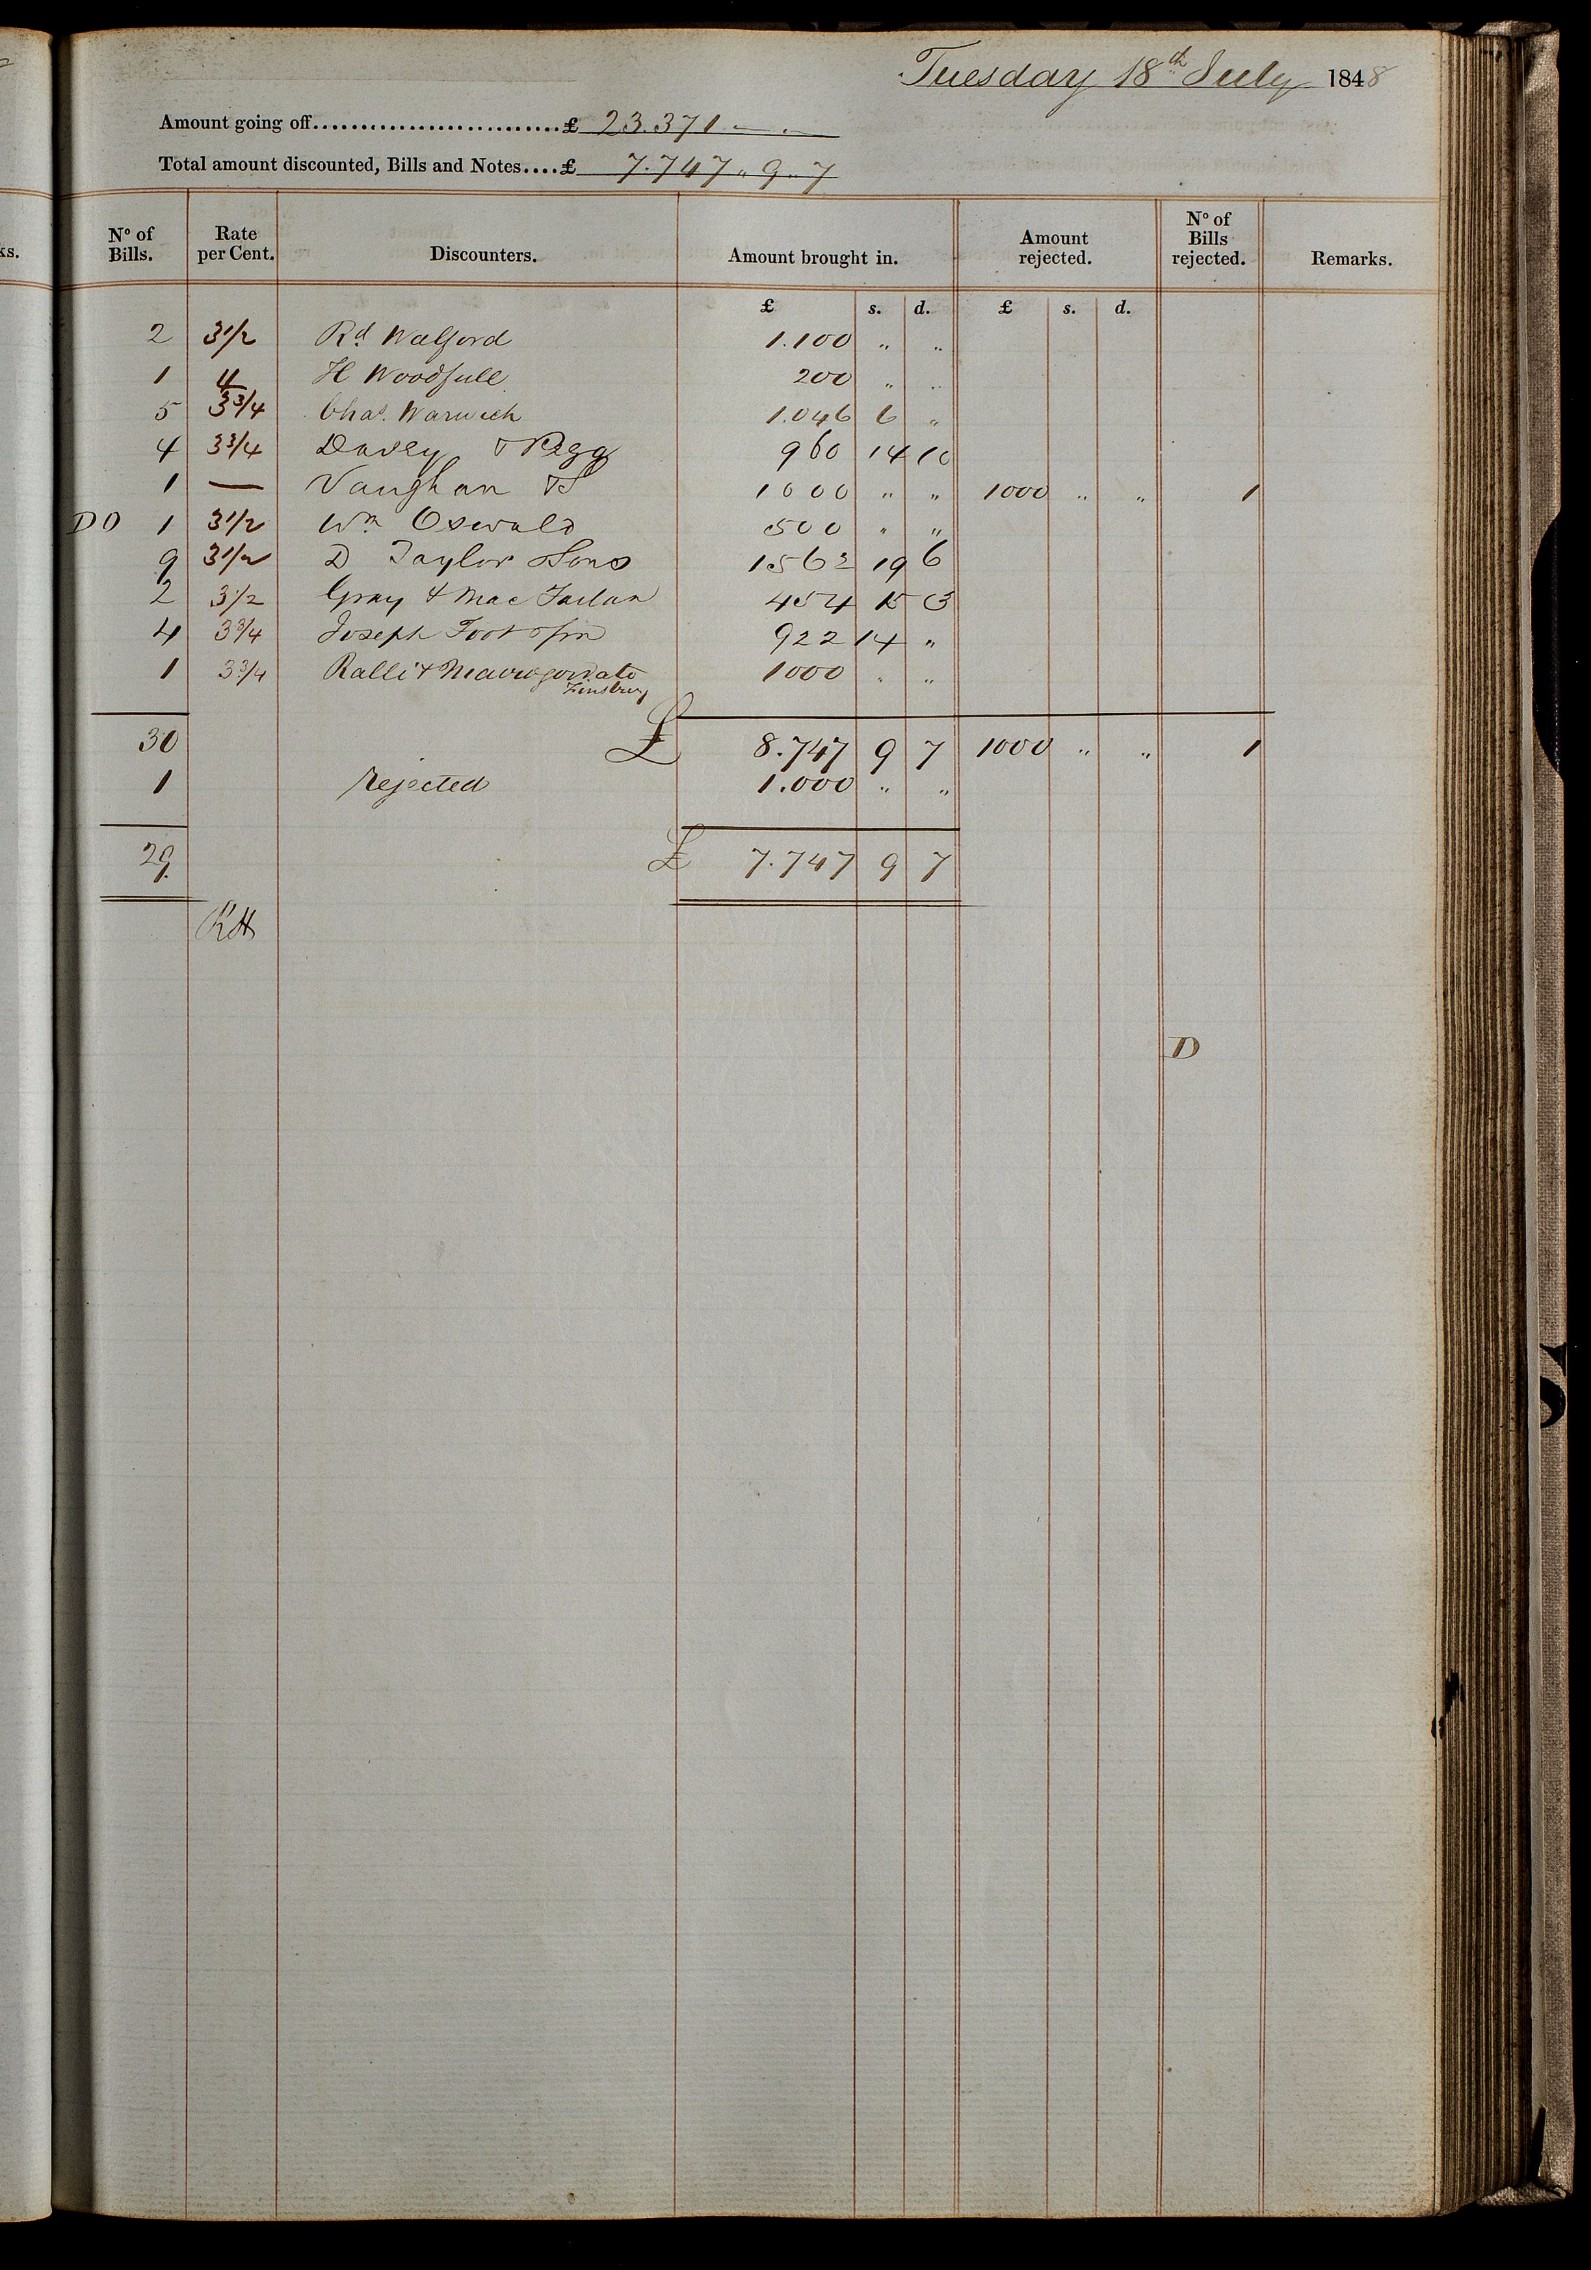 Tuesday 18th July 1848
Amount going off..........................£ 23.371 — . —
Total amount discounted, Bills and Notes....£ 7.747 " 9 " 7
ks.
No of Bills. Rate per Cent. Discounters. Amount brought in. Amount rejected. No of Bills rejected. Remarks.
£ s. d. £ s. d.
2 3 1/2 Rd Walford 1.100 " "
1 4 H Woodfull 200 " "
5 3 3/4 Chas. Warwick 1.046 6 "
4 3 3/4 Davey & Pegg 960 14 10
1 — Vaughan & 1000 " " 1000 " " 1
DO 1 3 1/2 Wm Oswald 500 " "
9 3 1/2 D Taylor Sons 1562 19 6
2 3 1/2 Gray & Mac Farlan 454 15 3
4 3 3/4 Joseph Foot & Son 922 14 "
1 3 3/4 Ralli & Mavrogordato 1000 " "
Finsbury
30 £ 8.747 9 7 1000 " " 1
1 Rejected 1.000 " "
29 £ 7.747 9 7
RH
D